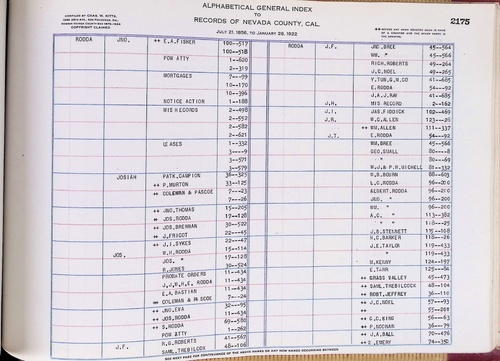 COMPILED BY CHAS. W. KITTS,
COPYRIGHT CLAIMED
ALPHABETICAL GENERAL INDEX
TO
RECORDS OF NEVADA COUNTY, CAL.
JULY 21, 1856, TO JANUARY 28, 1922
2175
RODDA JNO. ++ E.A.FISHER 100--517
100--518
POW ATTY 1--620
2--319
MORTGAGES 7---99
10--170
10--396
NOTICE ACTION 1--188
MIS RECORDS 2--498
2--552
2--582
2--621
LEASES 1--332
3----9
3--571
3--579
JOSIAH PATK.CAMPION 36--325
++ P.MURTON 33--125
++ COLEMAN & PASCOE 7---23
7---26
++ JNO.THOMAS 15--205
++ JOS.RODDA 17--128
++ JOS.BRENNAN 30--522
++ J.FRICOT 22---45
++ J.I.SYKES 22---47
JOS. W.H.RODDA 15--114
JOS. " 17--128
R.JONES 30--524
PROBATE ORDERS 11--434
J.,W.H.,E. RODDA 11--434
E.A.BASTIAN 11--434
++ COLEMAN & PASCOE 7---24
++ JNO.EVA 32---95
++ JOS.RODDA 11--434
++ S.RODDA 69--580
POW ATTY 1--262
J.F. R.G.ROBERTS 41--567
SAML.TREBILCOX 48--106
RODDA J.F. JNO.BREE 45--564
WM. " 45--564
RICH.ROBERTS 49--264
J.C.NOEL 49--265
Y.TUN,G.M.CO 41--685
E.RODDA 54---92
J.A.J.RAY 41--685
J.H. MIS RECORD 2--162
J.I. JAS.FIDDICK 102--469
J.R. W.C.ALLEN 123---26
++ WM.ALLEN 111--337
J.T. E.RODDA 54---92
WM.BREE 45--566
GEO.SMALL 80----8
" 80---69
W.J.& P.R.MICHELL 81--332
R.R.BOURN 88--603
L.C.RODDA 96--200
ALBERT.RODDA 96--200
JNO. " 96--200
WM. " 96--200
A.C. " 113--382
" 118---25
J.B.STENNETT 115--108
H.C.BARKER 118---26
J.E.TAYLOR 119--433
" 119--433
M.KENNY 124--197
E.TARR 125---56
++ GRASS VALLEY 45--473
++ SAML.TREBILCOCK 48--104
++ ROBT.JEFFREY 36--110
++ J.C.NOEL 57---93
++ " 55--281
++ C.C.KING 56---63
++ P.NOONAN 36---79
++ J.A.BALL 70--479
++ S.EMERY 74--350